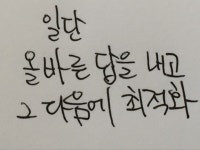 일단
올바른 답을 내고
그 다음에 최적화